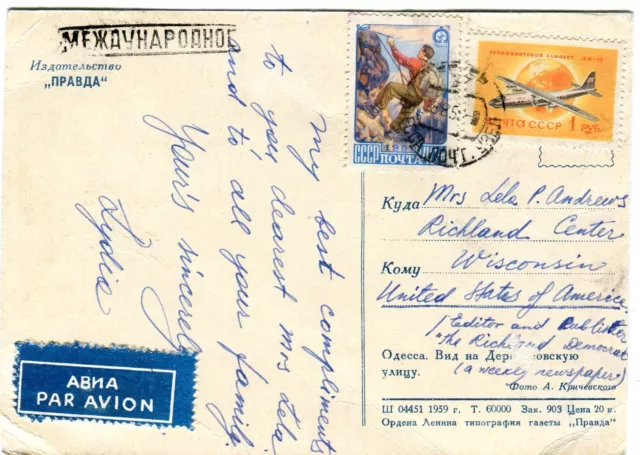 МЕЖДУНАРОДНОЕ
Издательство
„ПРАВДА“
My best compliments
to you dearest Mrs Lela
and to all your family.
Your's sincerely
Lydia
АВИА
PAR AVION
СССР ПОЧТА
ПОЧТА СССР 1 РУБ.
Куда Mrs Lela P. Andrews
Richland Center
Кому Wisconsin
United States of America
Editor and Publisher
"The Richland Democrat"
(a weekly newspaper)
Одесса. Вид на Дерибасовскую
улицу.
Фото А. Кричевского
Ш 04451 1959 г. Т. 60000 Зак. 903 Цена 20 к.
Ордена Ленина типография газеты „Правда“